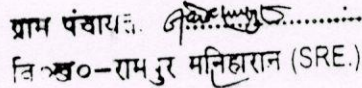 ग्राम पंचायत ................
वि०ख०-रामपुर मनिहारान (SRE.)